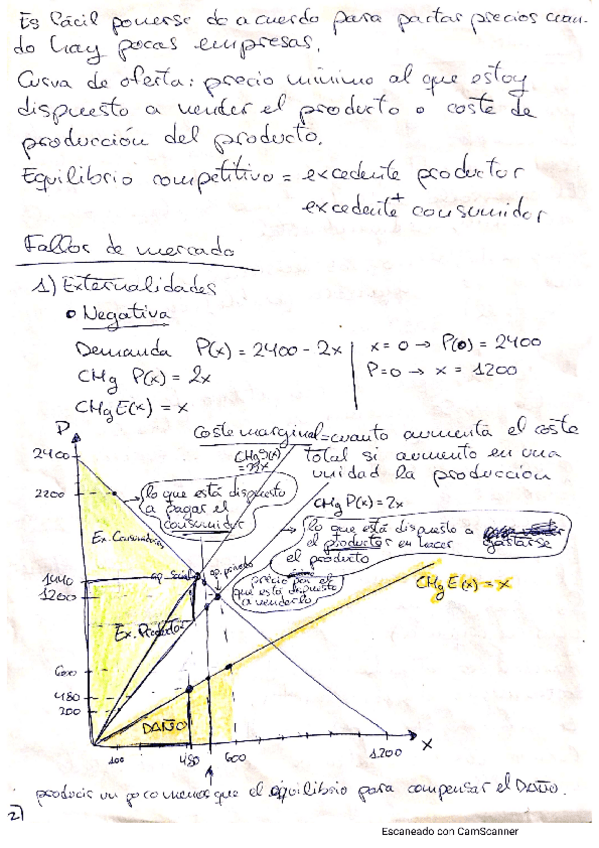 Es fácil ponerse de acuerdo para pactar precios cuan-
do hay pocas empresas.
Curva de oferta: precio mínimo al que estoy
dispuesto a vender el producto o coste de
producción del producto.
Equilibrio competitivo = excedente productor
+
excedente consumidor
Fallos de mercado
1) Externalidades
• Negativa
Demanda P(x) = 2400 - 2x
x = 0 → P(0) = 2400
CMg P(x) = 2x
P=0 → x = 1200
CMg E(x) = x
Coste marginal = cuanto aumenta el coste
total si aumento en una
unidad la producción
P
2400
CMg S(x)
2200
lo que está dispuesto
a pagar el
consumidor
CMg P(x) = 2x
lo que está dispuesto a
gastarse
el productor en hacer
el producto
Ex. Consumidores
op. social
op. privado
precio por el
que está dispuesto
a venderlo
1440
1200
CMg E(x) = x
Ex. Productor
600
480
200
DAÑO
100
480
600
1200
x
producir un poco menos que el equilibrio para compensar el DAÑO.
2)
Escaneado con CamScanner